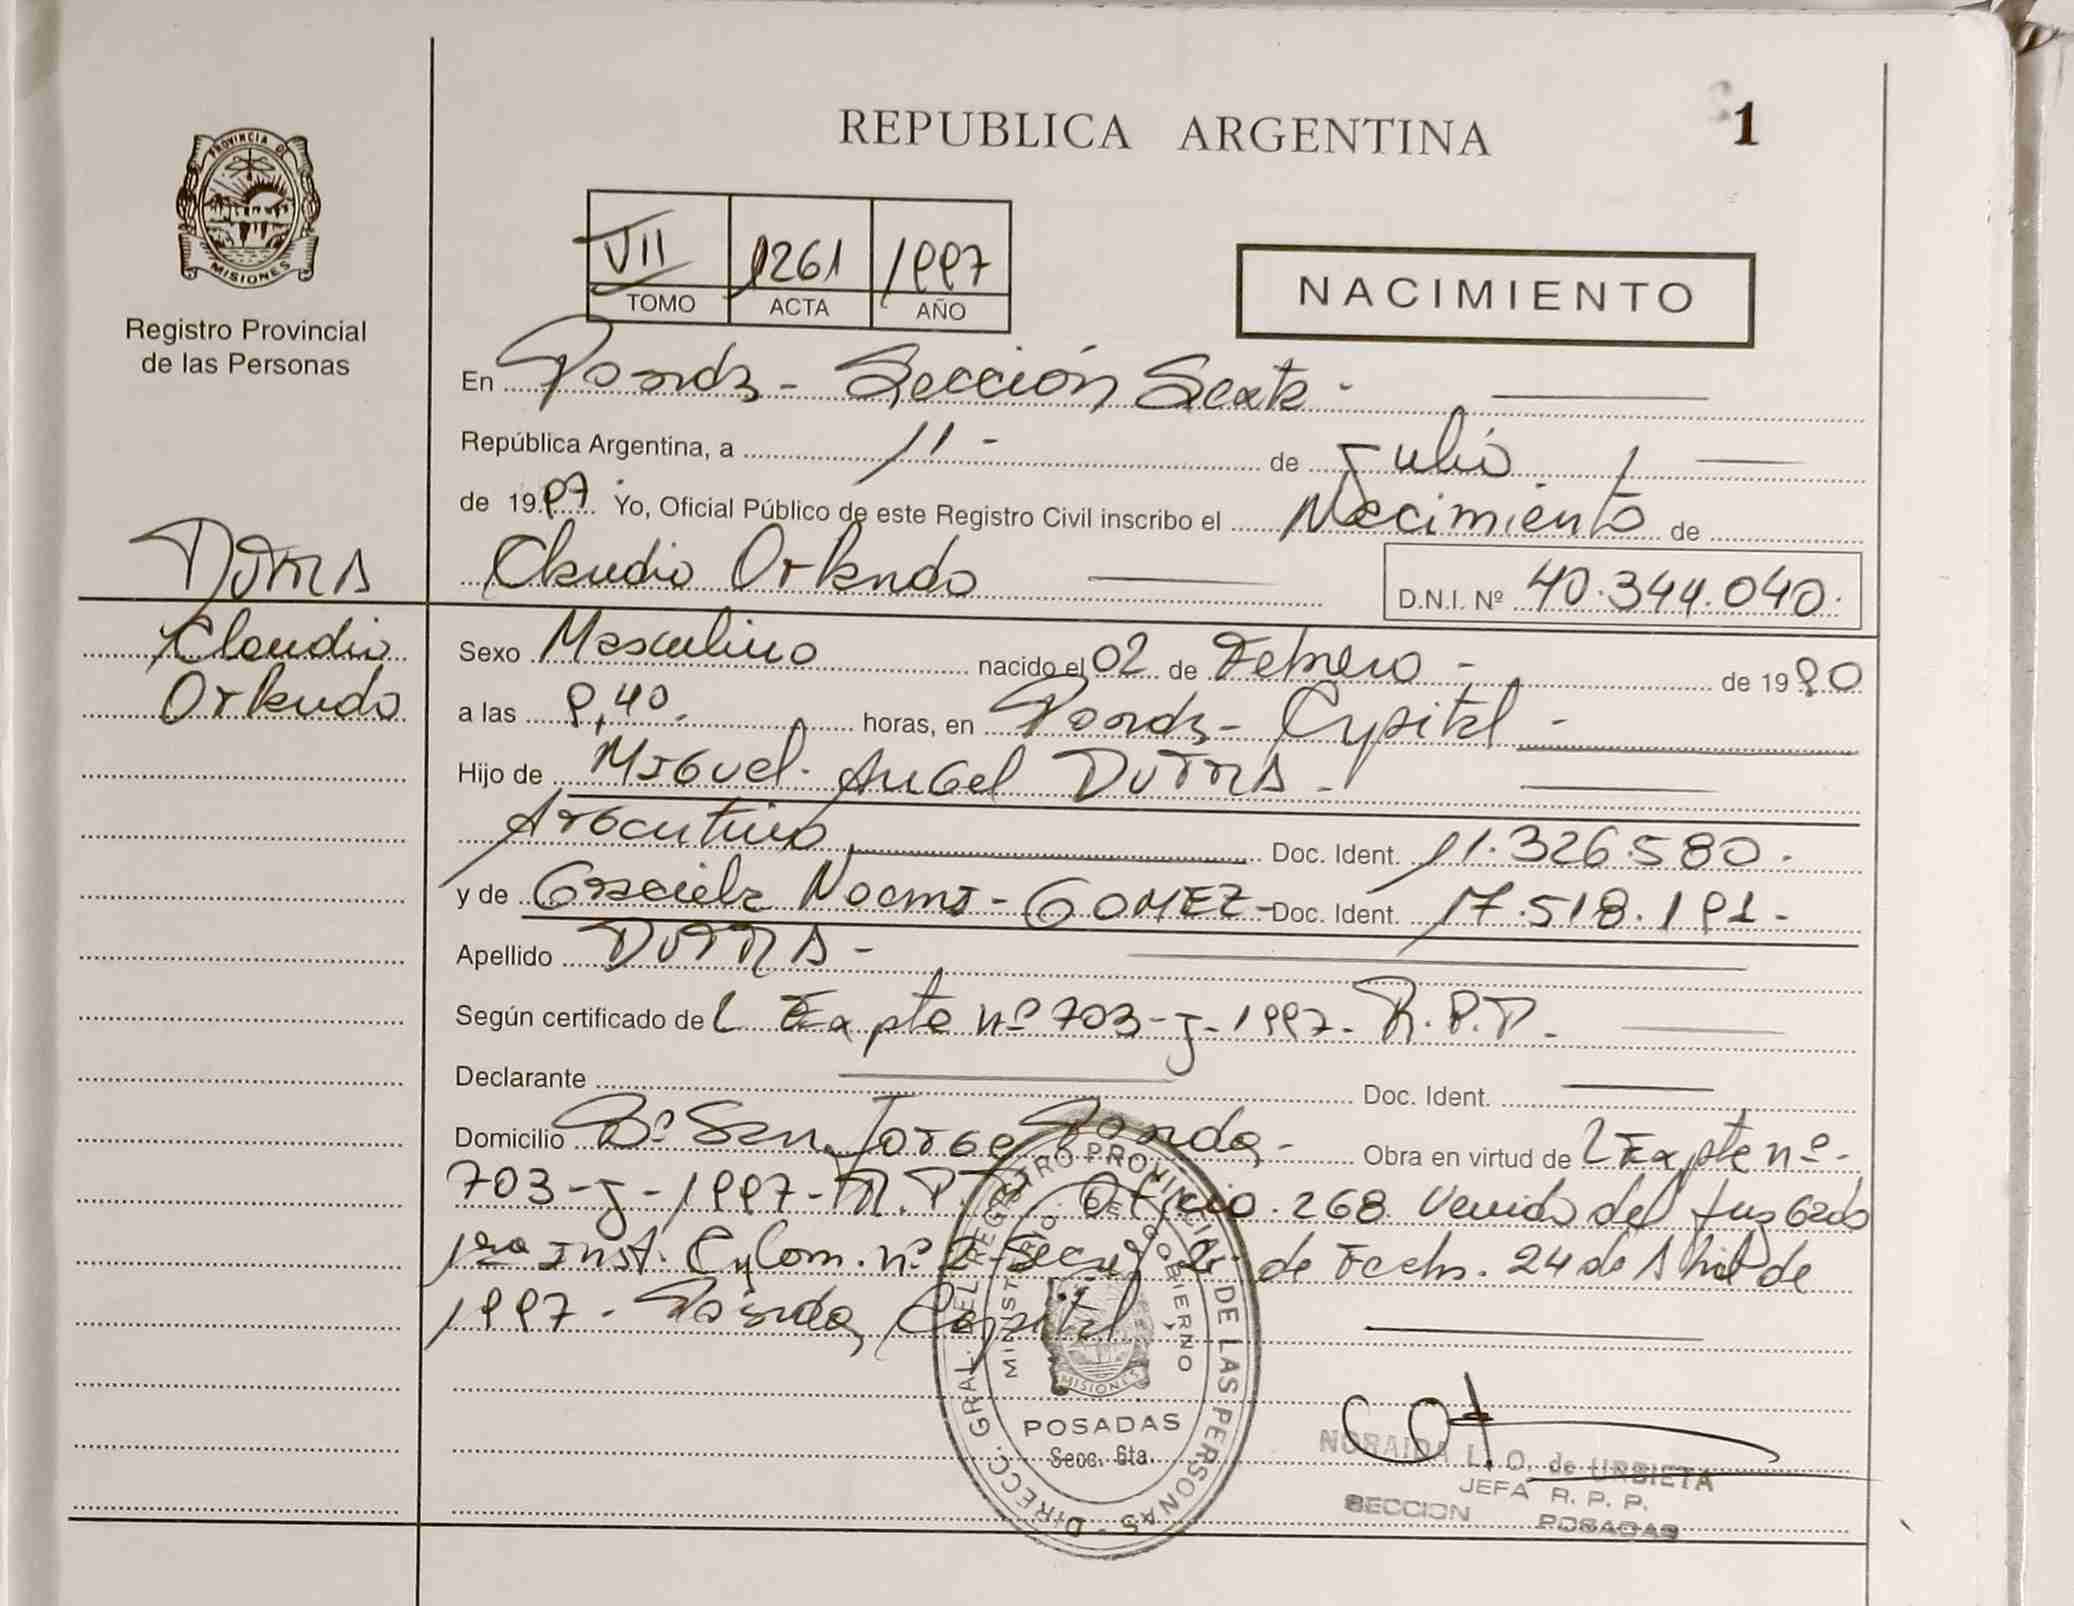 REPUBLICA ARGENTINA
1
PROVINCIA DE
MISIONES
Registro Provincial
de las Personas
VII 1261 1997
TOMO ACTA AÑO
NACIMIENTO
En Posadas - Sección Sexta -
República Argentina, a 11 - de Julio
de 1997. Yo, Oficial Público de este Registro Civil inscribo el Nacimiento de
Claudio Orlando
D.N.I. Nº 40.344.040.
DUTRA
Claudio
Orlando
Sexo Masculino nacido el 02 de Febrero - de 1990
a las 9,40. horas, en Posadas - Capital -
Hijo de Miguel Angel DUTRA -
Argentino Doc. Ident. 11.326.580.
y de Graciela Noemi - GOMEZ - Doc. Ident. 17.518.191 -
Apellido DUTRA -
Según certificado del Expte nº 703-J-1997- R.P.P.
Declarante Doc. Ident.
Domicilio Bº San Jorge Posadas - Obra en virtud del Expte nº -
703-J-1997- R.P. Oficio 268 Venido del Juzgado
1ra Inst. C y Com. nº 2 Secr. de Fecha 24 de Abril de
1997 - Posadas, Capital
DIRECC. GRAL. DEL REGISTRO PROVINCIAL DE LAS PERSONAS -
MINISTRO. DE GOBIERNO
MISIONES
POSADAS
Secc. 6ta.
NORAIDA L. O. de URBIETA
JEFA R. P. P.
SECCION POSADAS